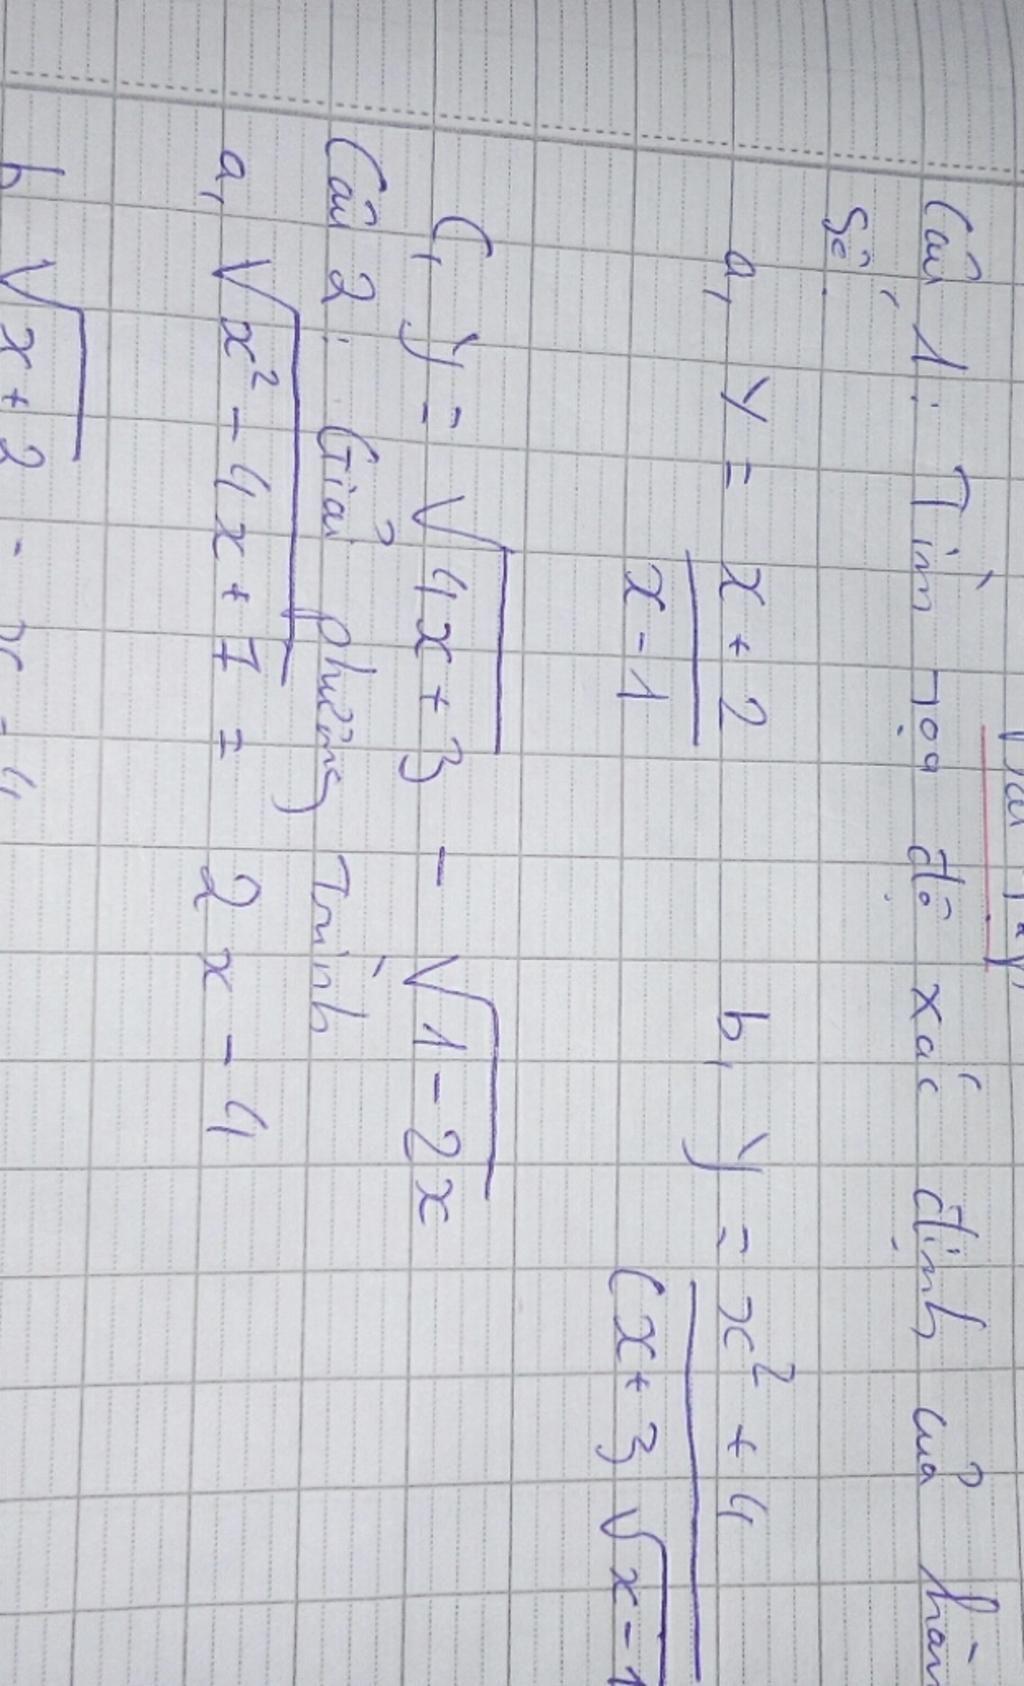 Bài Tập
Câu 1: Tìm tọa độ xác định của hàm
Số.
a, y = x + 2 / x - 1 b, y = x² + 4 / (x + 3 √x - 1
C, y = √4x + 3 - √1 - 2x
Câu 2: Giải phương Trình
a, √x² - 4x + 7 = 2x - 4
b √x + 2 = x - 4